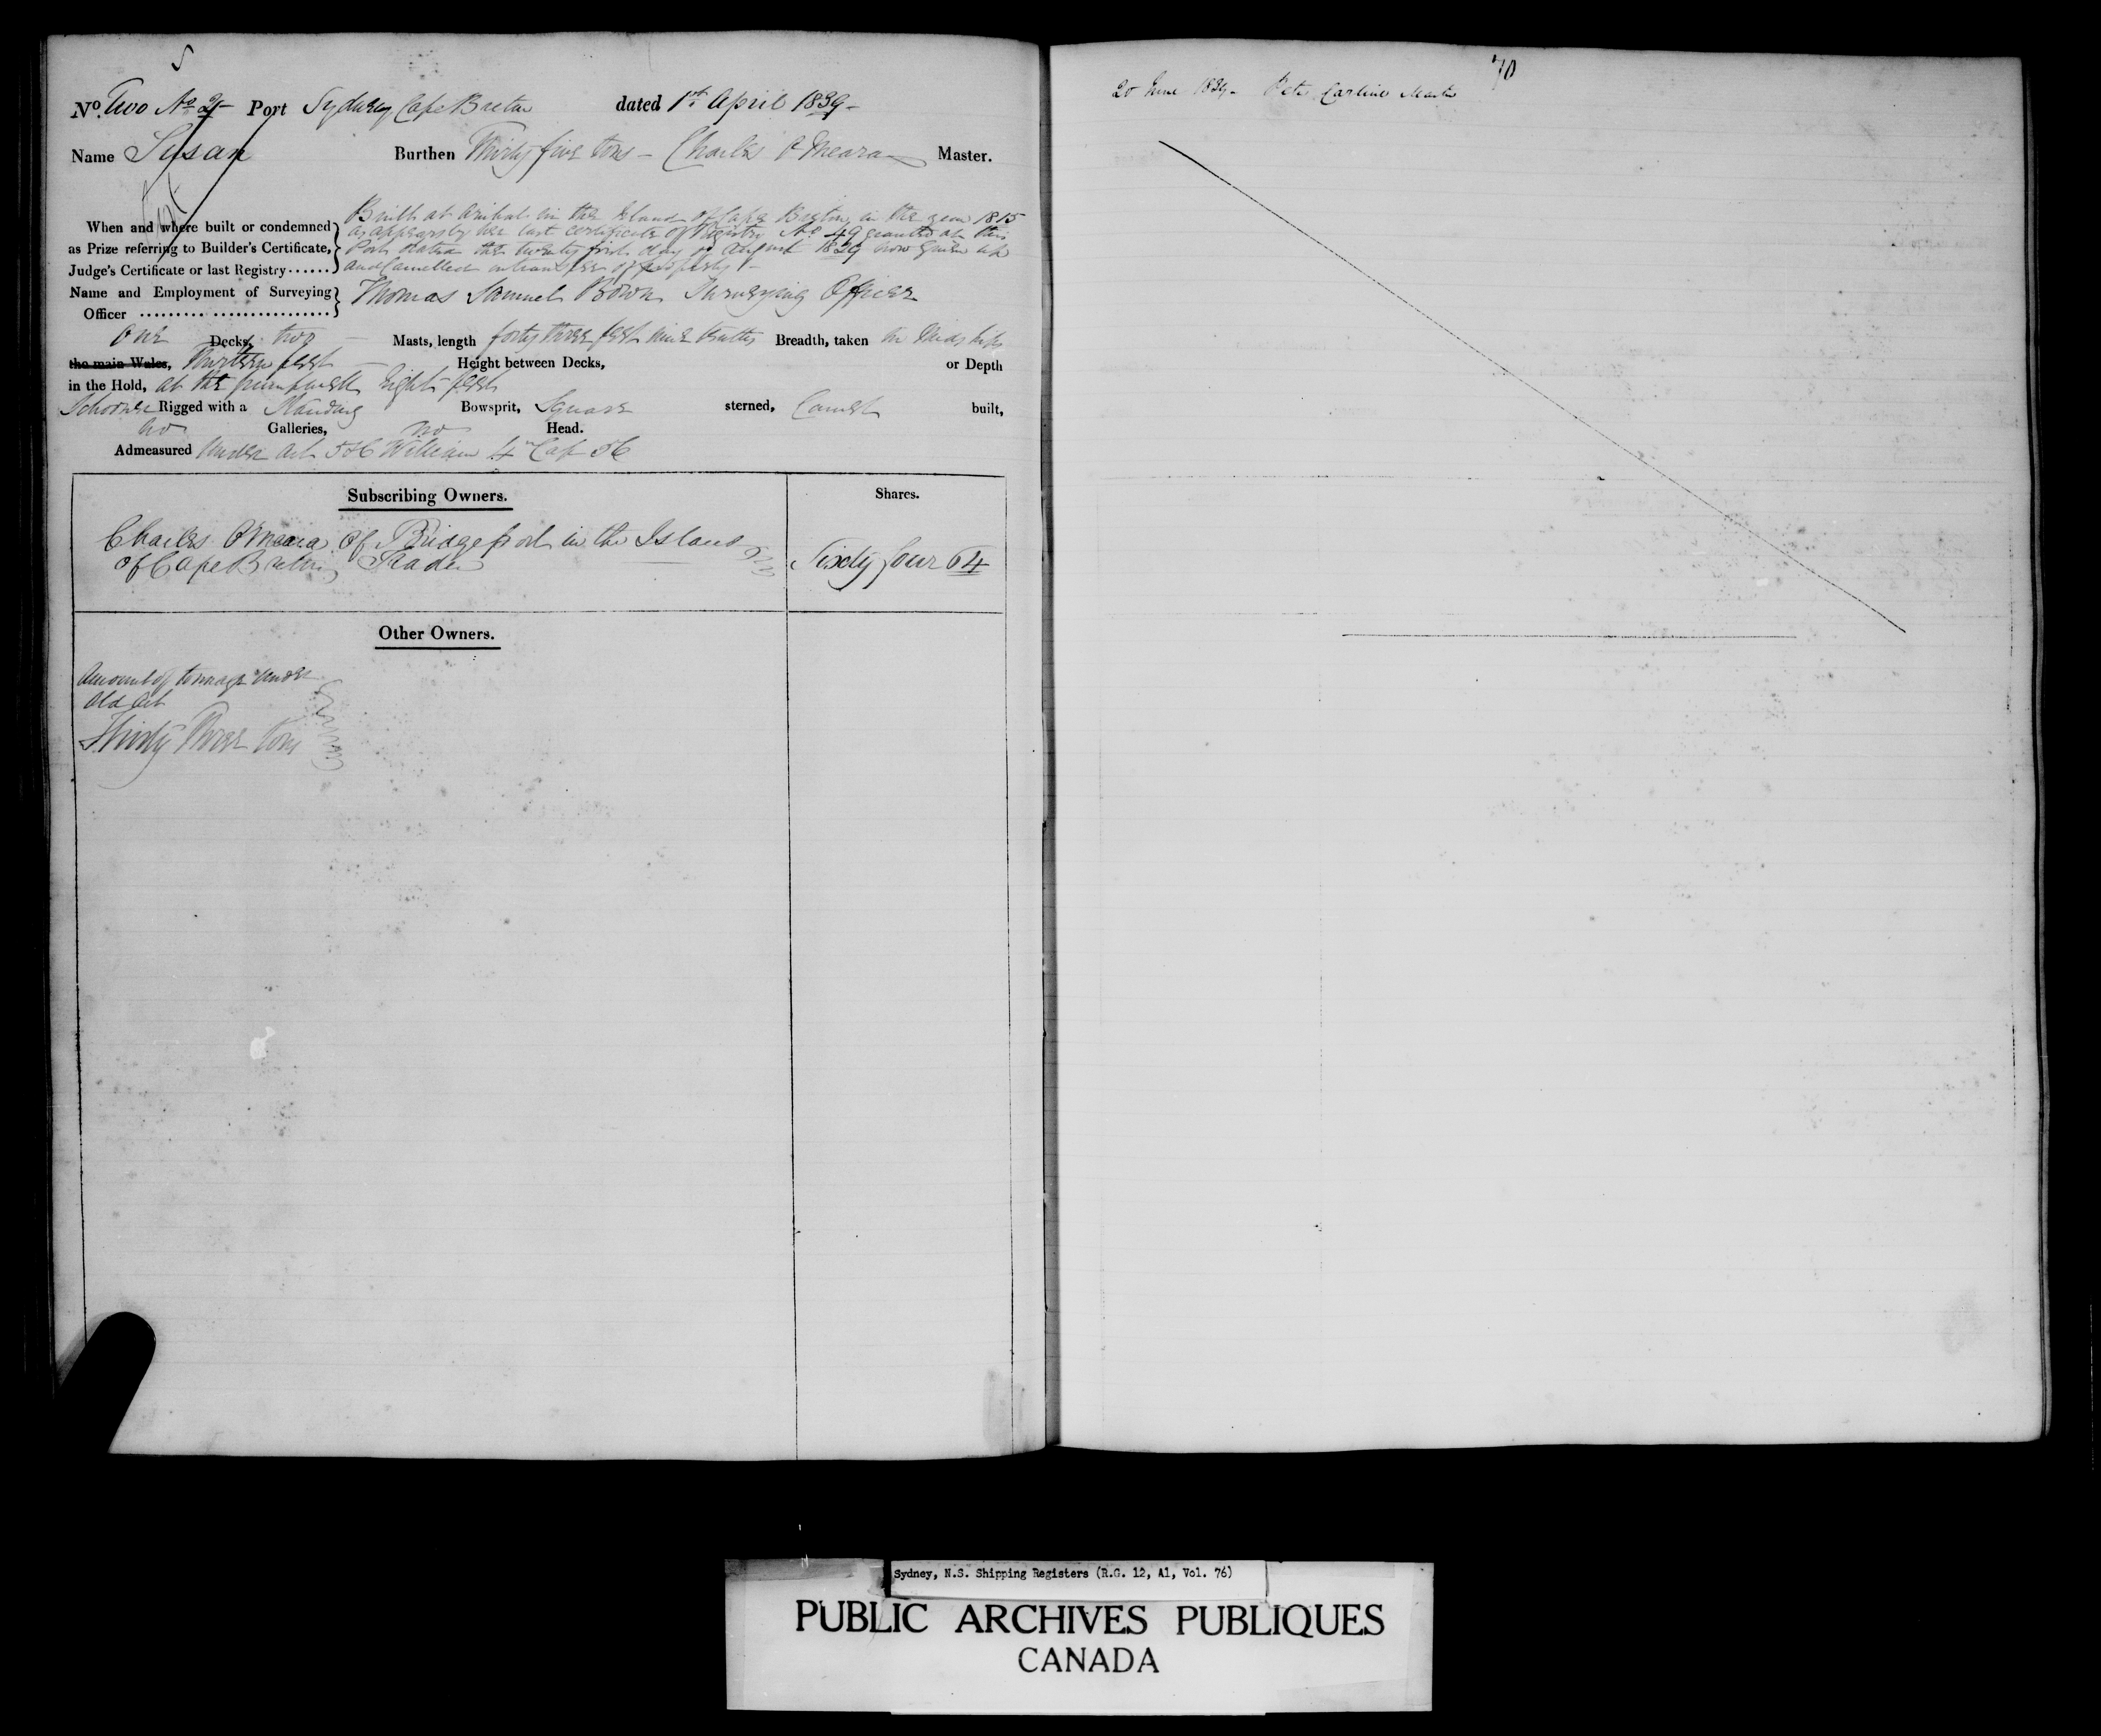 S
No. Two No. 2 Port Sydney Cape Breton dated 1st April 1839
Name Susan Burthen Thirty five tons Charles O'Meara Master.
Built at Arichat in the Island of Cape Breton in the year 1815
When and where built or condemned as appears by her last certificate of Registry No. 49 granted at this
as Prize referring to Builder's Certificate, Port dated the twenty first day of August 1839 now given up
Judge's Certificate or last Registry...... and Cancelled on transfer of property
Name and Employment of Surveying Thomas Samuel Bown Surveying Officer
Officer
One Decks, two Masts, length forty three feet nine tenths Breadth, taken in Midships
the main Wales, Thirteen feet Height between Decks, or Depth
in the Hold, at the pumpwell Eight feet
Schooner Rigged with a Standing Bowsprit, Square sterned, Carvel built,
no Galleries, no Head.
Admeasured Under Act 5 & 6 William 4th Cap 56
Subscribing Owners. Shares.
Charles O'Meara of Bridgeport in the Island
of Cape Breton Trader Sixty four 64
Other Owners.
Amount of tonnage under
Old Act
Thirty Three tons
70
20 June 1839 Peter Master
Sydney, N.S. Shipping Registers (R.G. 12, A1, Vol. 76)
PUBLIC ARCHIVES PUBLIQUES
CANADA